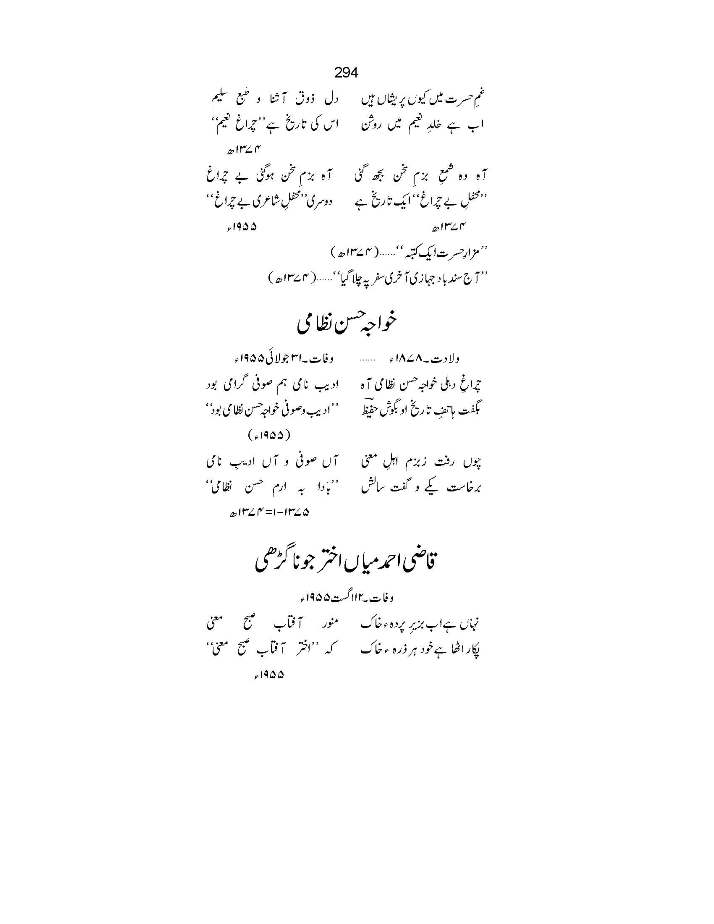 294
غمِ حسرت میں کیوں پریشاں ہیں دل ذوق آشنا و طبع سلیم
اب ہے خلدِ نعیم میں روشن اس کی تاریخ ہے ’’چراغ نعیم‘‘
۱۳۷۴ھ
آہ وہ شمعِ بزمِ سخن بجھ گئی آہ بزمِ سخن ہوگئی بے چراغ
’’محفلِ بے چراغ‘‘ ایک تاریخ ہے دوسری ’’محفلِ شاعری بے چراغ‘‘
۱۳۷۴ھ ۱۹۵۵ء
’’مزارِ حسرت ایک کتبہ‘‘......(۱۳۷۴ھ)
’’آج سند باد جہازی آخری سفر پہ چلا گیا‘‘......(۱۳۷۴ھ)
خواجہ حسن نظامی
ولادت۔۱۸۷۸ء ...... وفات۔۳۱ جولائی ۱۹۵۵ء
چراغِ دہلی خواجہ حسن نظامی آہ ادیب نامی ہم صوفی گرامی بود
بگفت ہاتفِ تاریخ او بگوش حفیظؔ ’’ادیب و صوفی خواجہ حسن نظامی بود‘‘
(۱۹۵۵ء)
چوں رفت زبزم اہلِ معنی آں صوفی و آں ادیب نامی
برخاست یکے و گفت سالش ’’بادا بہ ارم حسن نظامی‘‘
۱۳۷۵-۱=۱۳۷۴ھ
قاضی احمد میاں اختر جونا گڑھی
وفات۔۱۲اگست ۱۹۵۵ء
نہاں ہے اب بزیرِ پردہء خاک منور آفتاب صبح معنی
پکار اٹھا ہے خود ہر ذرہ ء خاک کہ ’’اختر آفتاب صبح معنی‘‘
۱۹۵۵ء